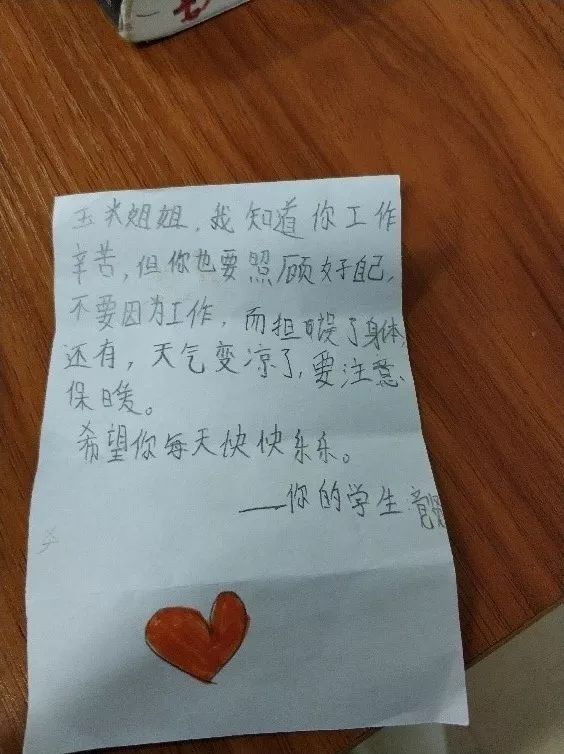 玉米姐姐，我知道你工作
辛苦，但你也要照顾好自己，
不要因为工作，而担误了身体，
还有，天气变凉了，要注意
保暖。
希望你每天快快乐乐。
——你的学生